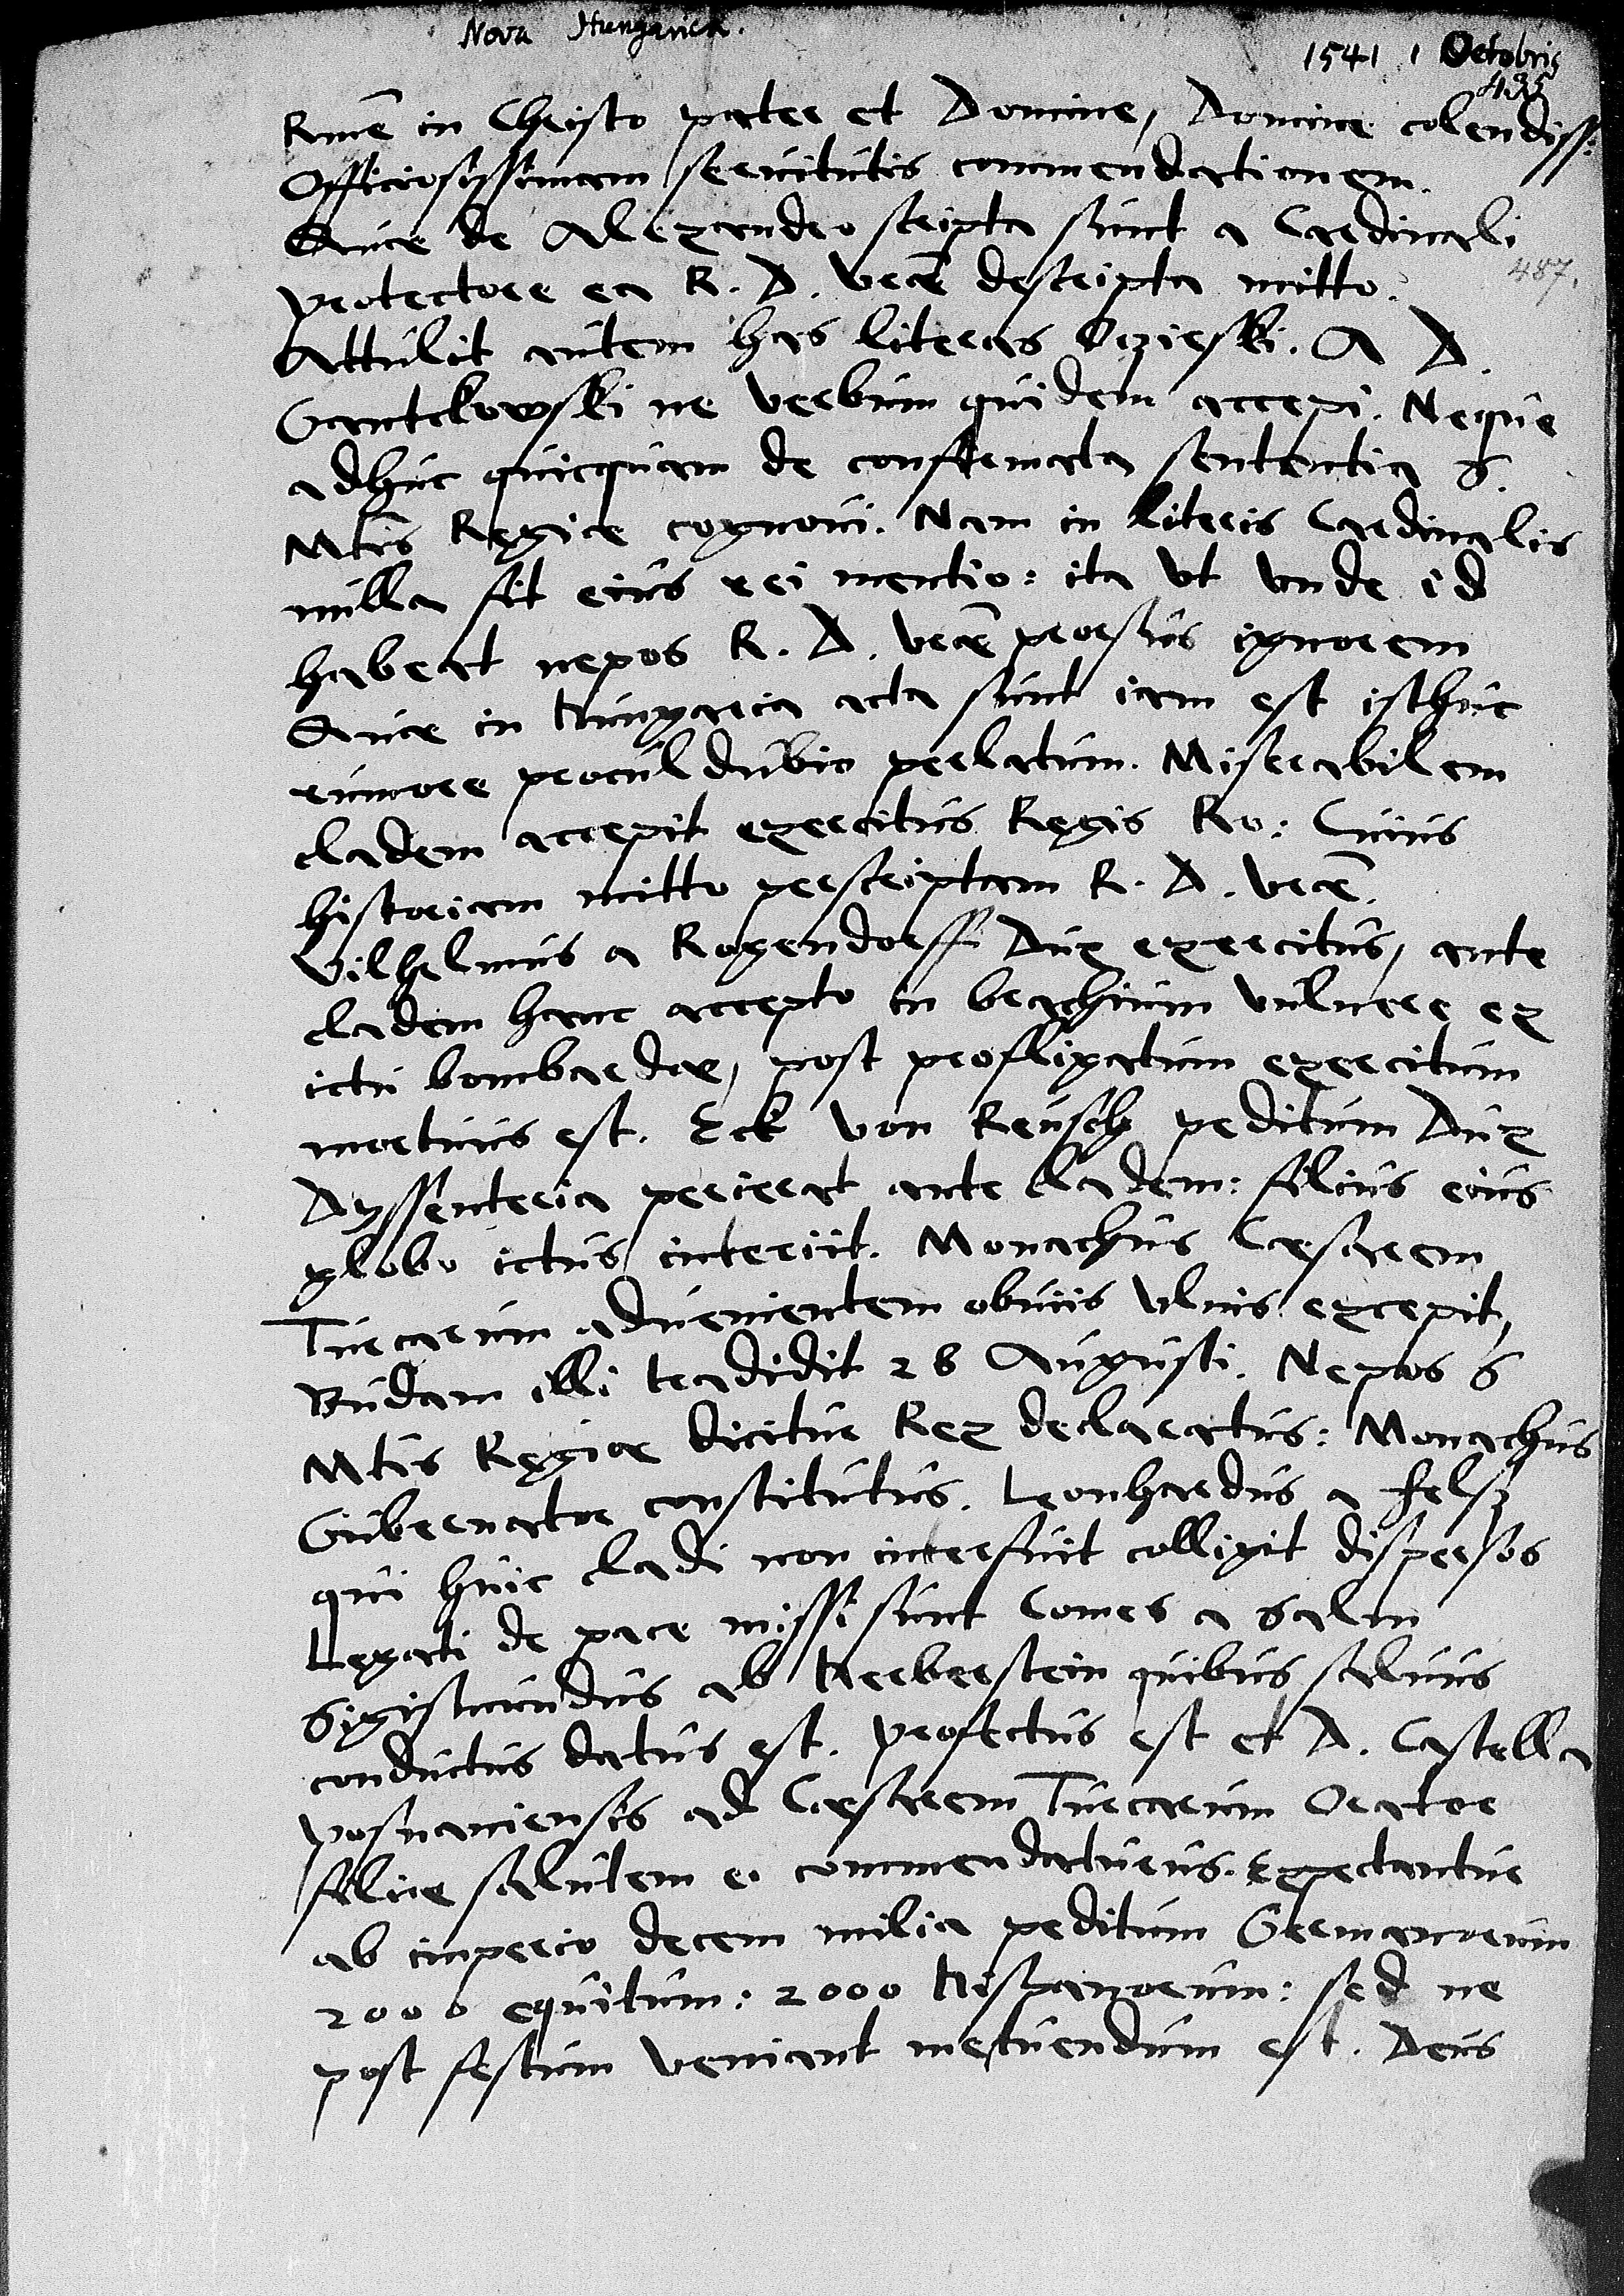 Nova Hungarica.
1541 1 Octobris
495
Rme in Christo pater et Domine, Domine colendiss:
Officiosissimam servitutis commendationem.
Quae de Alexandro scripta sunt a Cardinali
487.
protectore ea R. D. vrae descripta mitto.
Attulit autem has literas Orzieski. A D.
Gantckowski ne verbum quidem accepi. Neque
adhuc quicquam de confirmata sententia S.
Mtis Regiae cognovi. Nam in literis Cardinalis
nulla fit eius rei mentio: ita ut unde id
habeat nepos R. D. vrae prorsus ignorem
Quae in Hungaria acta sunt iam est isthuc
rumore proculdubio perlatum. Miserabilem
cladem accepit exercitus Regis Ro: Cuius
historiam mitto perscriptam R. D. vrae.
Vilhelmus a Rogendorff Dux exercitus, ante
cladem hanc accepto in brachium vulnere ex
ictu bombardae, post profligatum exercitum
mortuus est. Eck von Reusch peditum Dux
Dyssenteria perierat ante cladem: filius eius
globo ictus interiit. Monachus Caesarem
Turcarum advenientem obviis ulnis excepit,
Budam illi tradidit 26 Augusti. Nepos S
Mtis Regiae dicitur Rex declaratus: Monachus
Gubernator constitutus. Leonhardus a Felss
qui huic cladi non interfuit colligit dispersos
Legati de pace missi sunt Comes a Salm
Sigismundus ab Herberstein quibus salvus
conductus datus est. Profectus est et D. Castella
Posnaniensis ad Caesarem Turcarum Orator
filiae salutem ei commendaturus. Expectantur
ab imperio decem milia peditum Germanorum
2000 equitum: 2000 Hispanorum: sed ne
post festum veniant metuendum est. Deus